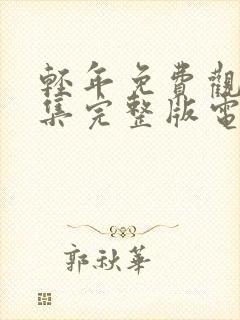 輕年免費觀
集完整版電
郭秋華